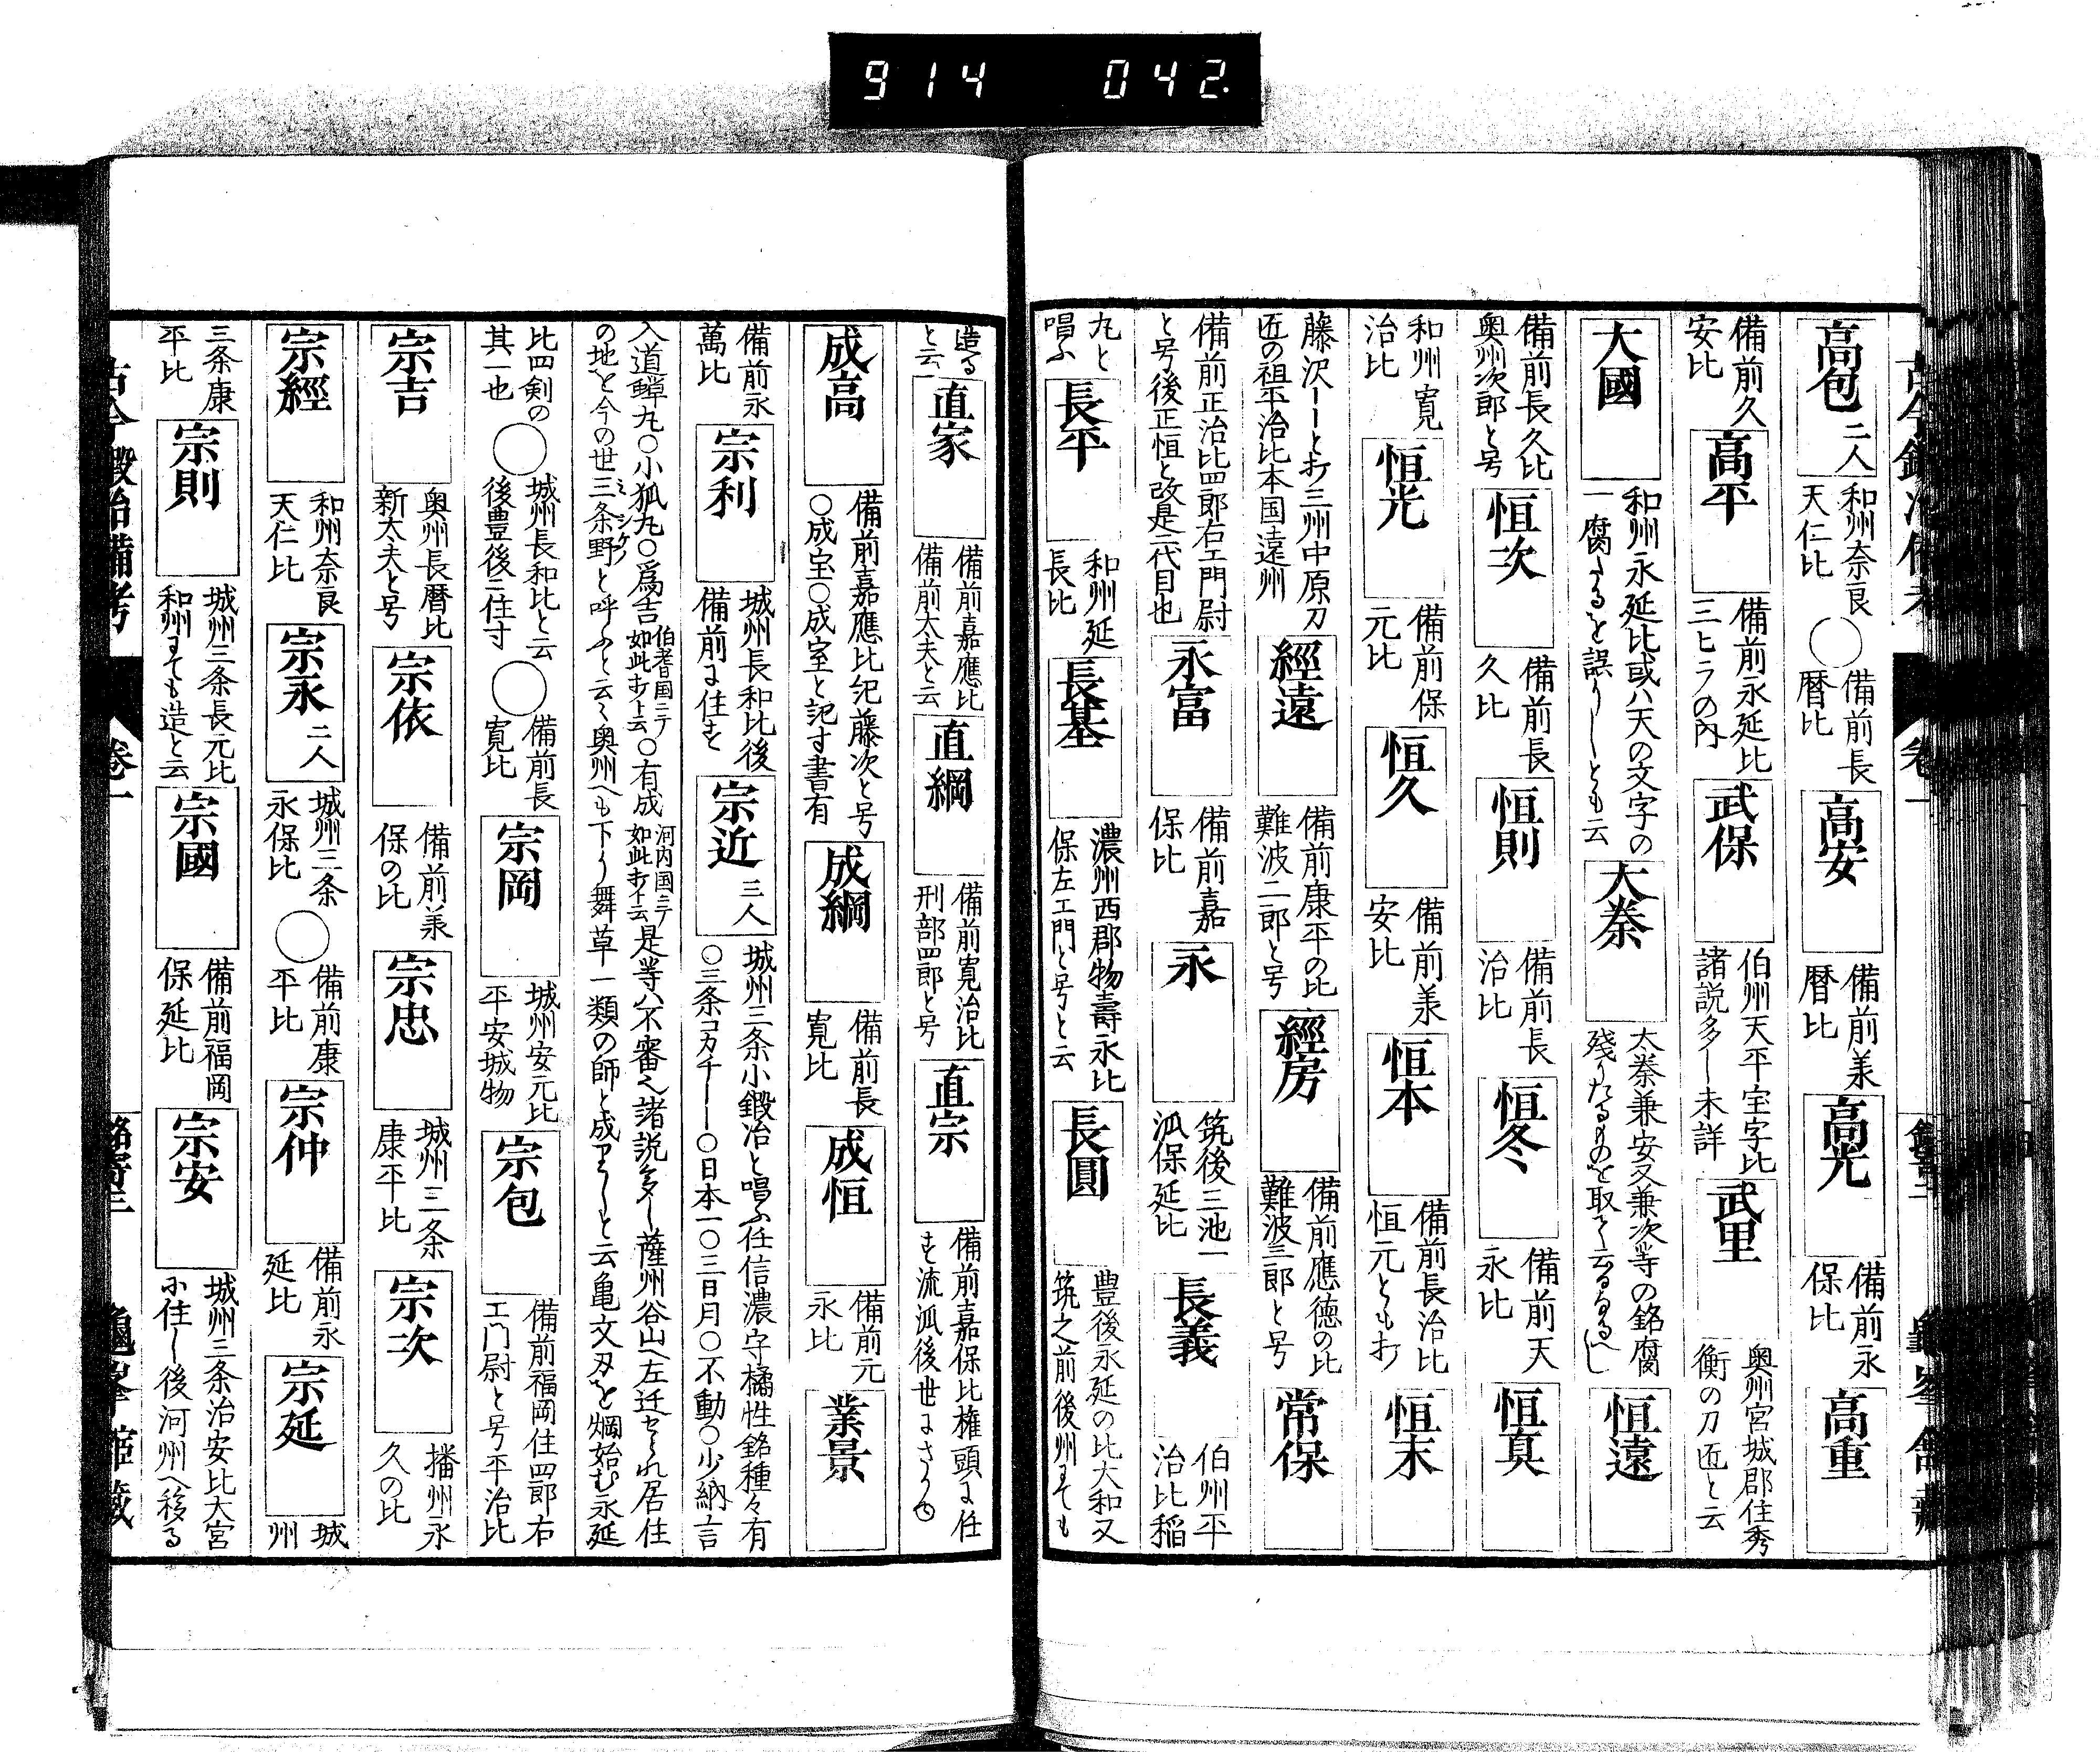 914 042
高包 二人 和州奈良 天仁比 ○ 備前長 暦比 高安 備前美 暦比 高光 備前永 保比 高重
備前久 安比 高平 備前永延比 三ヒラの内 武保 伯州天平宝字比 諸説多し未詳 武里 奥州宮城郡住秀 衡の刀匠と云
大國 和州永延比或ハ天の文字の 一腐たるを誤りしとも云 大秦 太秦兼安又兼次等の銘腐 残りたるものを取て云るなるべし 恒遠
備前長久比 奥州次郎と号 恒次 備前長 久比 恒則 備前長 治比 恒冬 備前天 永比 恒真
和州寛 治比 恒光 備前保 元比 恒久 備前美 安比 恒本 備前長治比 恒元とも打 恒末
藤沢ーと打三州中原刀 匠の祖平治比本国遠州 經遠 備前康平の比 難波二郎と号 經房 備前應徳の比 難波三郎と号 常保
備前正治比四郎右エ門尉 と号後正恒と改是二代目也 永富 備前嘉 保比 永 筑後三池一 派保延比 長義 伯州平 治比稲
丸と 唱ふ 長平 和州延 長比 長基 濃州西郡物壽永比 保左エ門と号と云 長圓 豊後永延の比大和又 筑之前後州にても
造る と云 直家 備前嘉應比 備前大夫と云 直綱 備前寛治比 刑部四郎と号 直宗 備前嘉保比権頭に任
成高 備前嘉應比紀藤次と号 ○成宝○成室と記す書有 成綱 備前長 寛比 成恒 備前元 永比 業景
備前永 萬比 宗利 城州長和比後 備前に住す 宗近 三人 城州三条小鍛冶と唱ふ任信濃守橘性銘種々有 ○三条コカチーー○日本一○三日月○不動○少納言
入道蝉丸○小狐丸○爲吉 伯耆国ニテ 如此打ト云 ○有成 河内国ニテ 如此打ト云 是等ハ不審也諸説多し薩州谷山へ左迁せられ居住
の地を今の世三条野と呼ふと云く奥州へも下り舞草一類の師と成りしと云亀文刃を焼始む永延
比四剣の 其一也 ○ 城州長和比と云 後豊後ニ住す ○ 備前長 寛比 宗岡 城州安元比 平安城物 宗包 備前福岡住四郎右 エ门尉と号平治比
宗吉 奥州長暦比 新太夫と号 宗依 備前美 保の比 宗忠 城州三条 康平比 宗次 播州永 久の比
宗經 和州奈良 天仁比 宗永 二人 城州三条 永保比 ○ 備前康 平比 宗仲 備前永 延比 宗延 城 州
三条康 平比 宗則 城州三条長元比 和州にても造と云 宗國 備前福岡 保延比 宗安 城州三条治安比大宮 に住し後河州へ移る
古今鍛冶備考 卷一